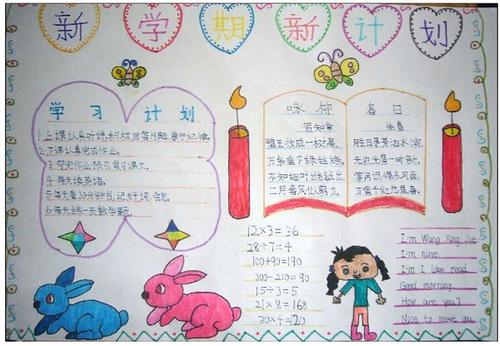 新学期新计划
学习计划
1.上课认真听讲,积极回答问题,
2.下课认真完成作业。
4.每天读英语。
5.每天看30分钟书,记好词,
6.每天练一页数学题。
咏柳
贺知章
碧玉妆成一树高,
万条垂下绿丝绦。
不知细叶谁裁出,
二月春风似剪刀。
春日
朱熹
胜日寻芳泗水滨,
无边光景一时新。
等闲识得东风面,
万紫千红总是春。
12×3=36
28÷7=4
100+90=190
300-210=90
15÷3=5
21×8=168
30×4=120
I'm Wang Xing Jie
I'm nine.
I'm I like read
Good morning
How are you?
Nice to meet you